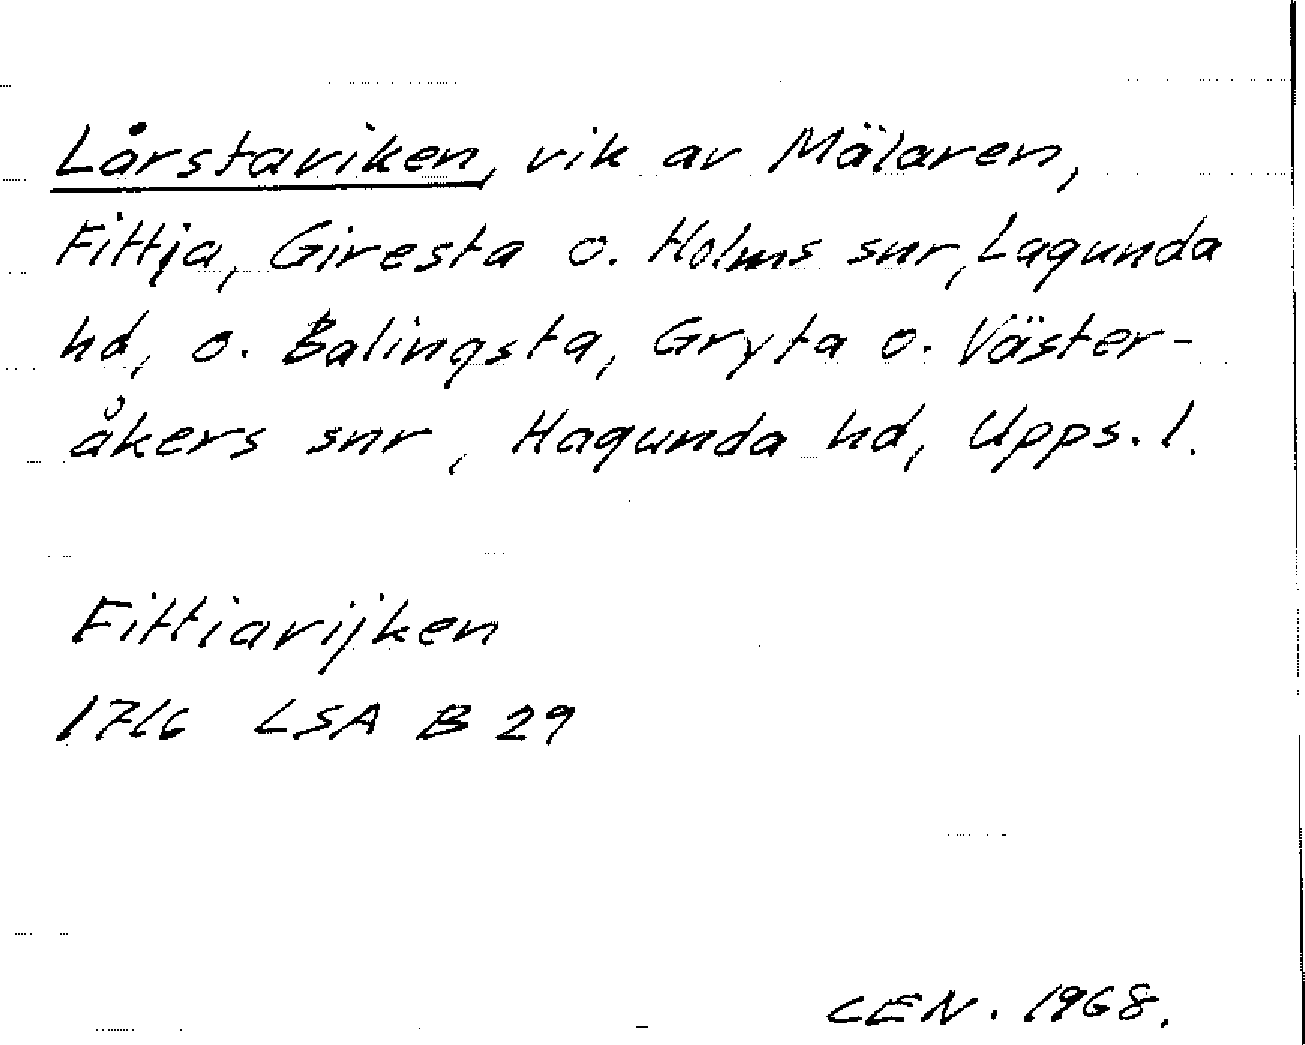 Lårstaviken, vik av Mälaren,
Fittja, Giresta o. Holms snr, Lagunda
hd, o. Balingsta, Gryta o. Väster-
åkers snr, Hagunda hd, Upps. l.
Fittiavijken
1716 LSA B 29
CEN. 1968.